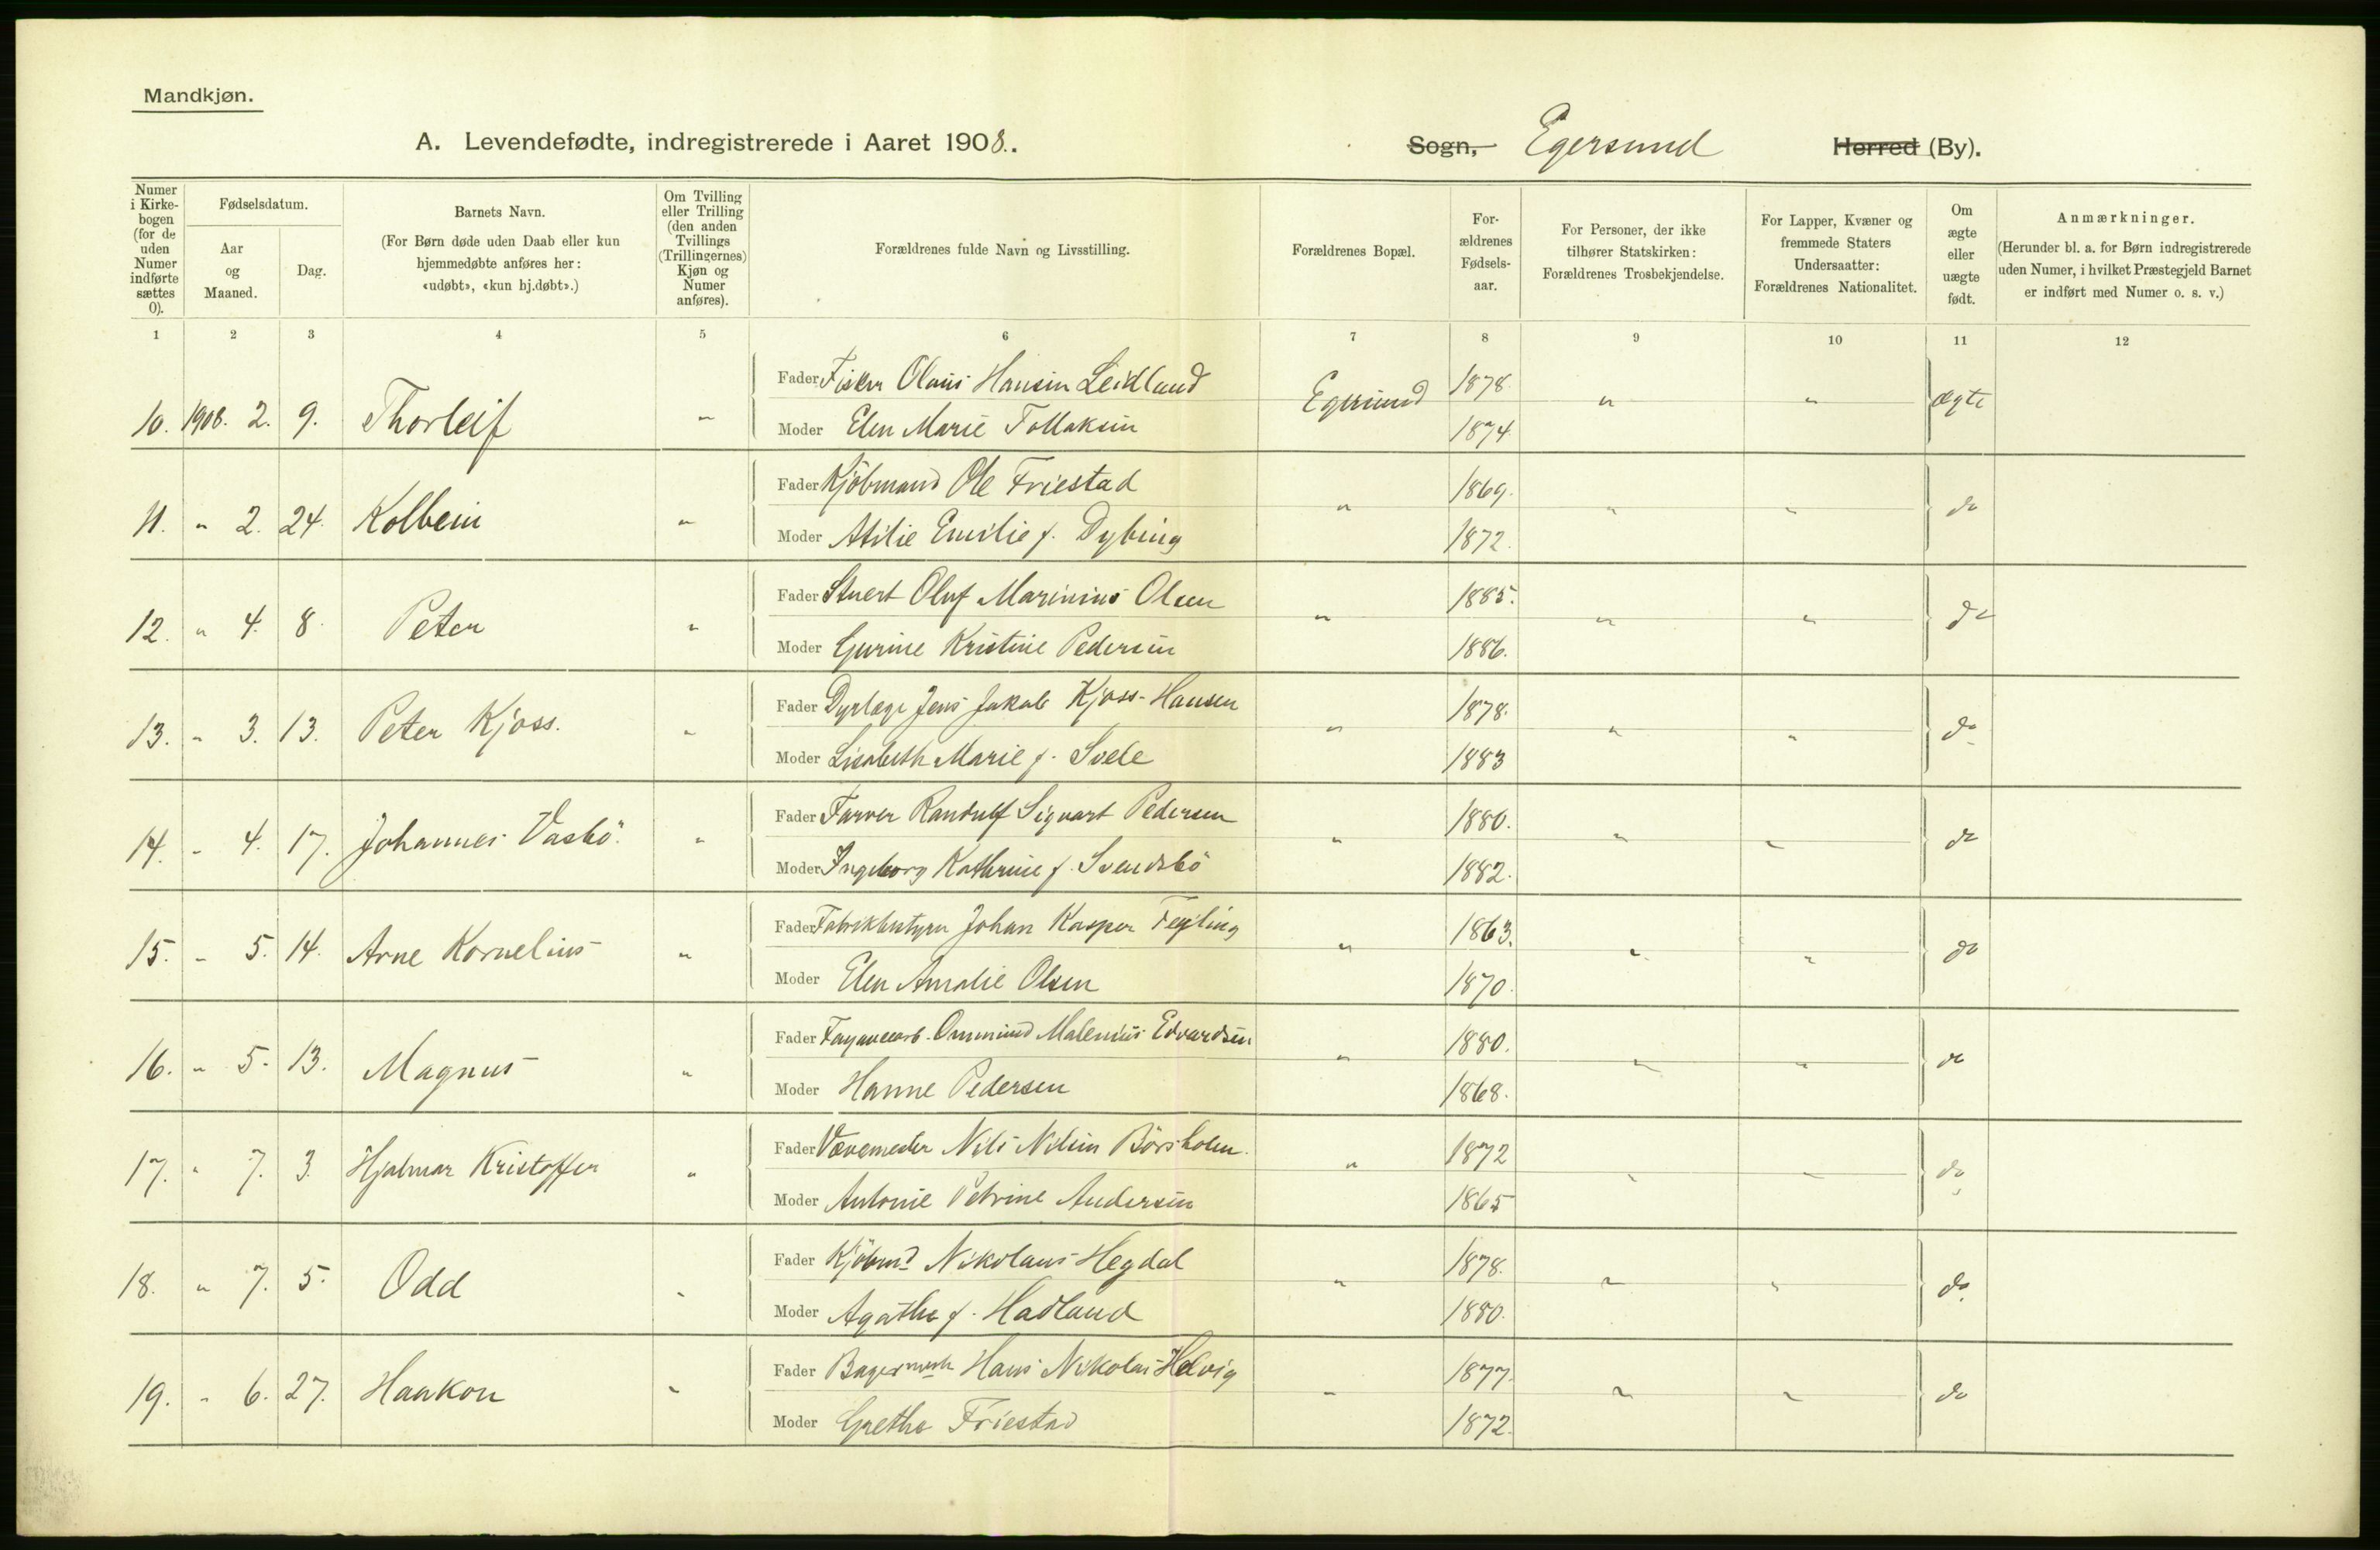 Mandkjøn.
A. Levendefødte, indregistrerede i Aaret 1908.. Sogn, Egersund Herred (By).
Numer i Kirkebogen (for de uden Numer indførte sættes 0).
Fødselsdatum.
Aar og Maaned.
Dag.
Barnets Navn.
(For Børn døde uden Daab eller kun hjemmedøbte anføres her: «udøbt», «kun hj.døbt».)
Om Tvilling eller Trilling (den anden Tvillings (Trillingernes) Kjøn og Numer anføres).
Forældrenes fulde Navn og Livsstilling.
Forældrenes Bopæl.
Forældrenes Fødselsaar.
For Personer, der ikke tilhører Statskirken: Forældrenes Trosbekjendelse.
For Lapper, Kvæner og fremmede Staters Undersaatter: Forældrenes Nationalitet.
Om ægte eller uægte født.
Anmærkninger.
(Herunder bl. a. for Børn indregistrerede uden Numer, i hvilket Præstegjeld Barnet er indført med Numer o. s. v.)
1 2 3 4 5 6 7 8 9 10 11 12
10. 1908. 2. 9. Thorleif " Fader Fisker Olaus Hansen Leidland Egersund 1878 " " ægte
Moder Elen Marie Tollaksen 1874
11. " 2. 24. Kolbein " Fader Kjöbmand Ole Friestad " 1869. " " do
Moder Atilie Emilie f. Dybing 1872.
12. " 4. 8. Peter " Fader Stuert Oluf Marinius Olsen " 1885. " " do
Moder Gurine Kristine Pedersen 1886.
13. " 3. 13. Peter Kjoss. " Fader Dyrlæge Jens Jakob Kjoss-Hansen " 1878. " " do
Moder Lisabeth Marie f. Svele 1883
14. " 4. 17. Johannes Vasbö. " Fader Farver Randulf Sigvart Pedersen " 1880. " " do
Moder Ingeborg Kathrine f. Svendsbö 1882.
15. " 5. 14. Arne Kornelius " Fader Fabrikbestyrer Johan Kasper Feyling " 1863. " " do
Moder Elen Amalie Olsen 1870.
16. " 5. 13. Magnus " Fader Fayancearb. Ommund Malenius Edvardsen " 1880. " " do
Moder Hanne Pedersen 1868.
17. " 7. 3. Hjalmar Kristoffer " Fader Vævemester Nils Nilsen Börsholm. " 1872 " " do
Moder Antonie Petrine Andersen 1865
18. " 7. 5. Odd " Fader Kjöbmd Nikolaus Hegdal " 1878. " " do.
Moder Agathe f. Hadland 1880.
19. " 6. 27. Haakon " Fader Bagermestr Hans Nikolai Helvig " 1877. " " do
Moder Grethe Friestad 1872.